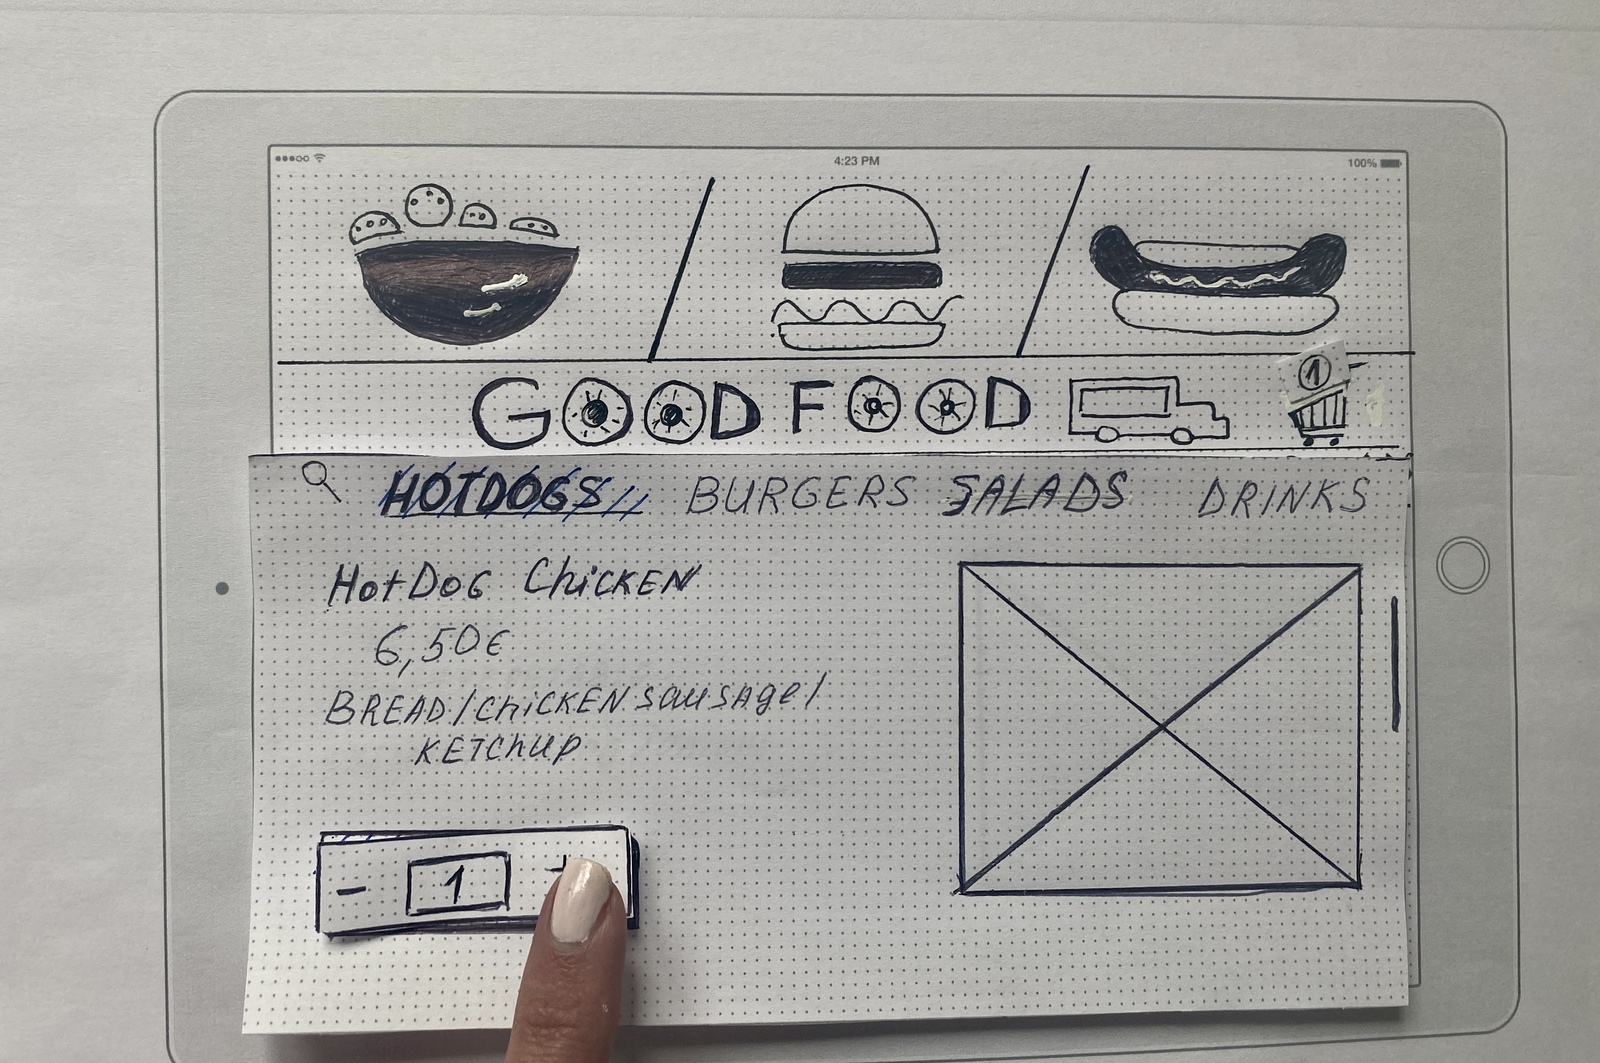 4:23 PM
100%
GOOD FOOD
1
HOTDOGS BURGERS SALADS DRINKS
HotDOG ChiCKEN
6,50€
BREAD/ChiCKEN sausage/
KETChup
- 1 +